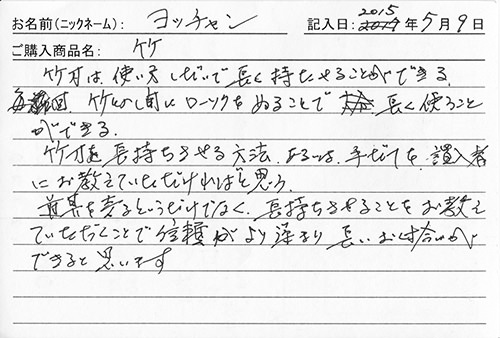 お名前(ニックネーム): ヨッチャン 記入日: 2015年5月9日
ご購入商品名: 竹
竹刀は、使い方しだいで長く持たせることができる。
毎回 竹の削り面にロークをぬることで 長く使うこと
ができる。
竹刀を長持ちさせる方法、あるいは、手だてを、購入者
にお教えていただければと思う。
道具を売るというだけでなく、長持ちさせることをお教え
ていただくことで信頼がより深まり 長いお付合いが
できると思います